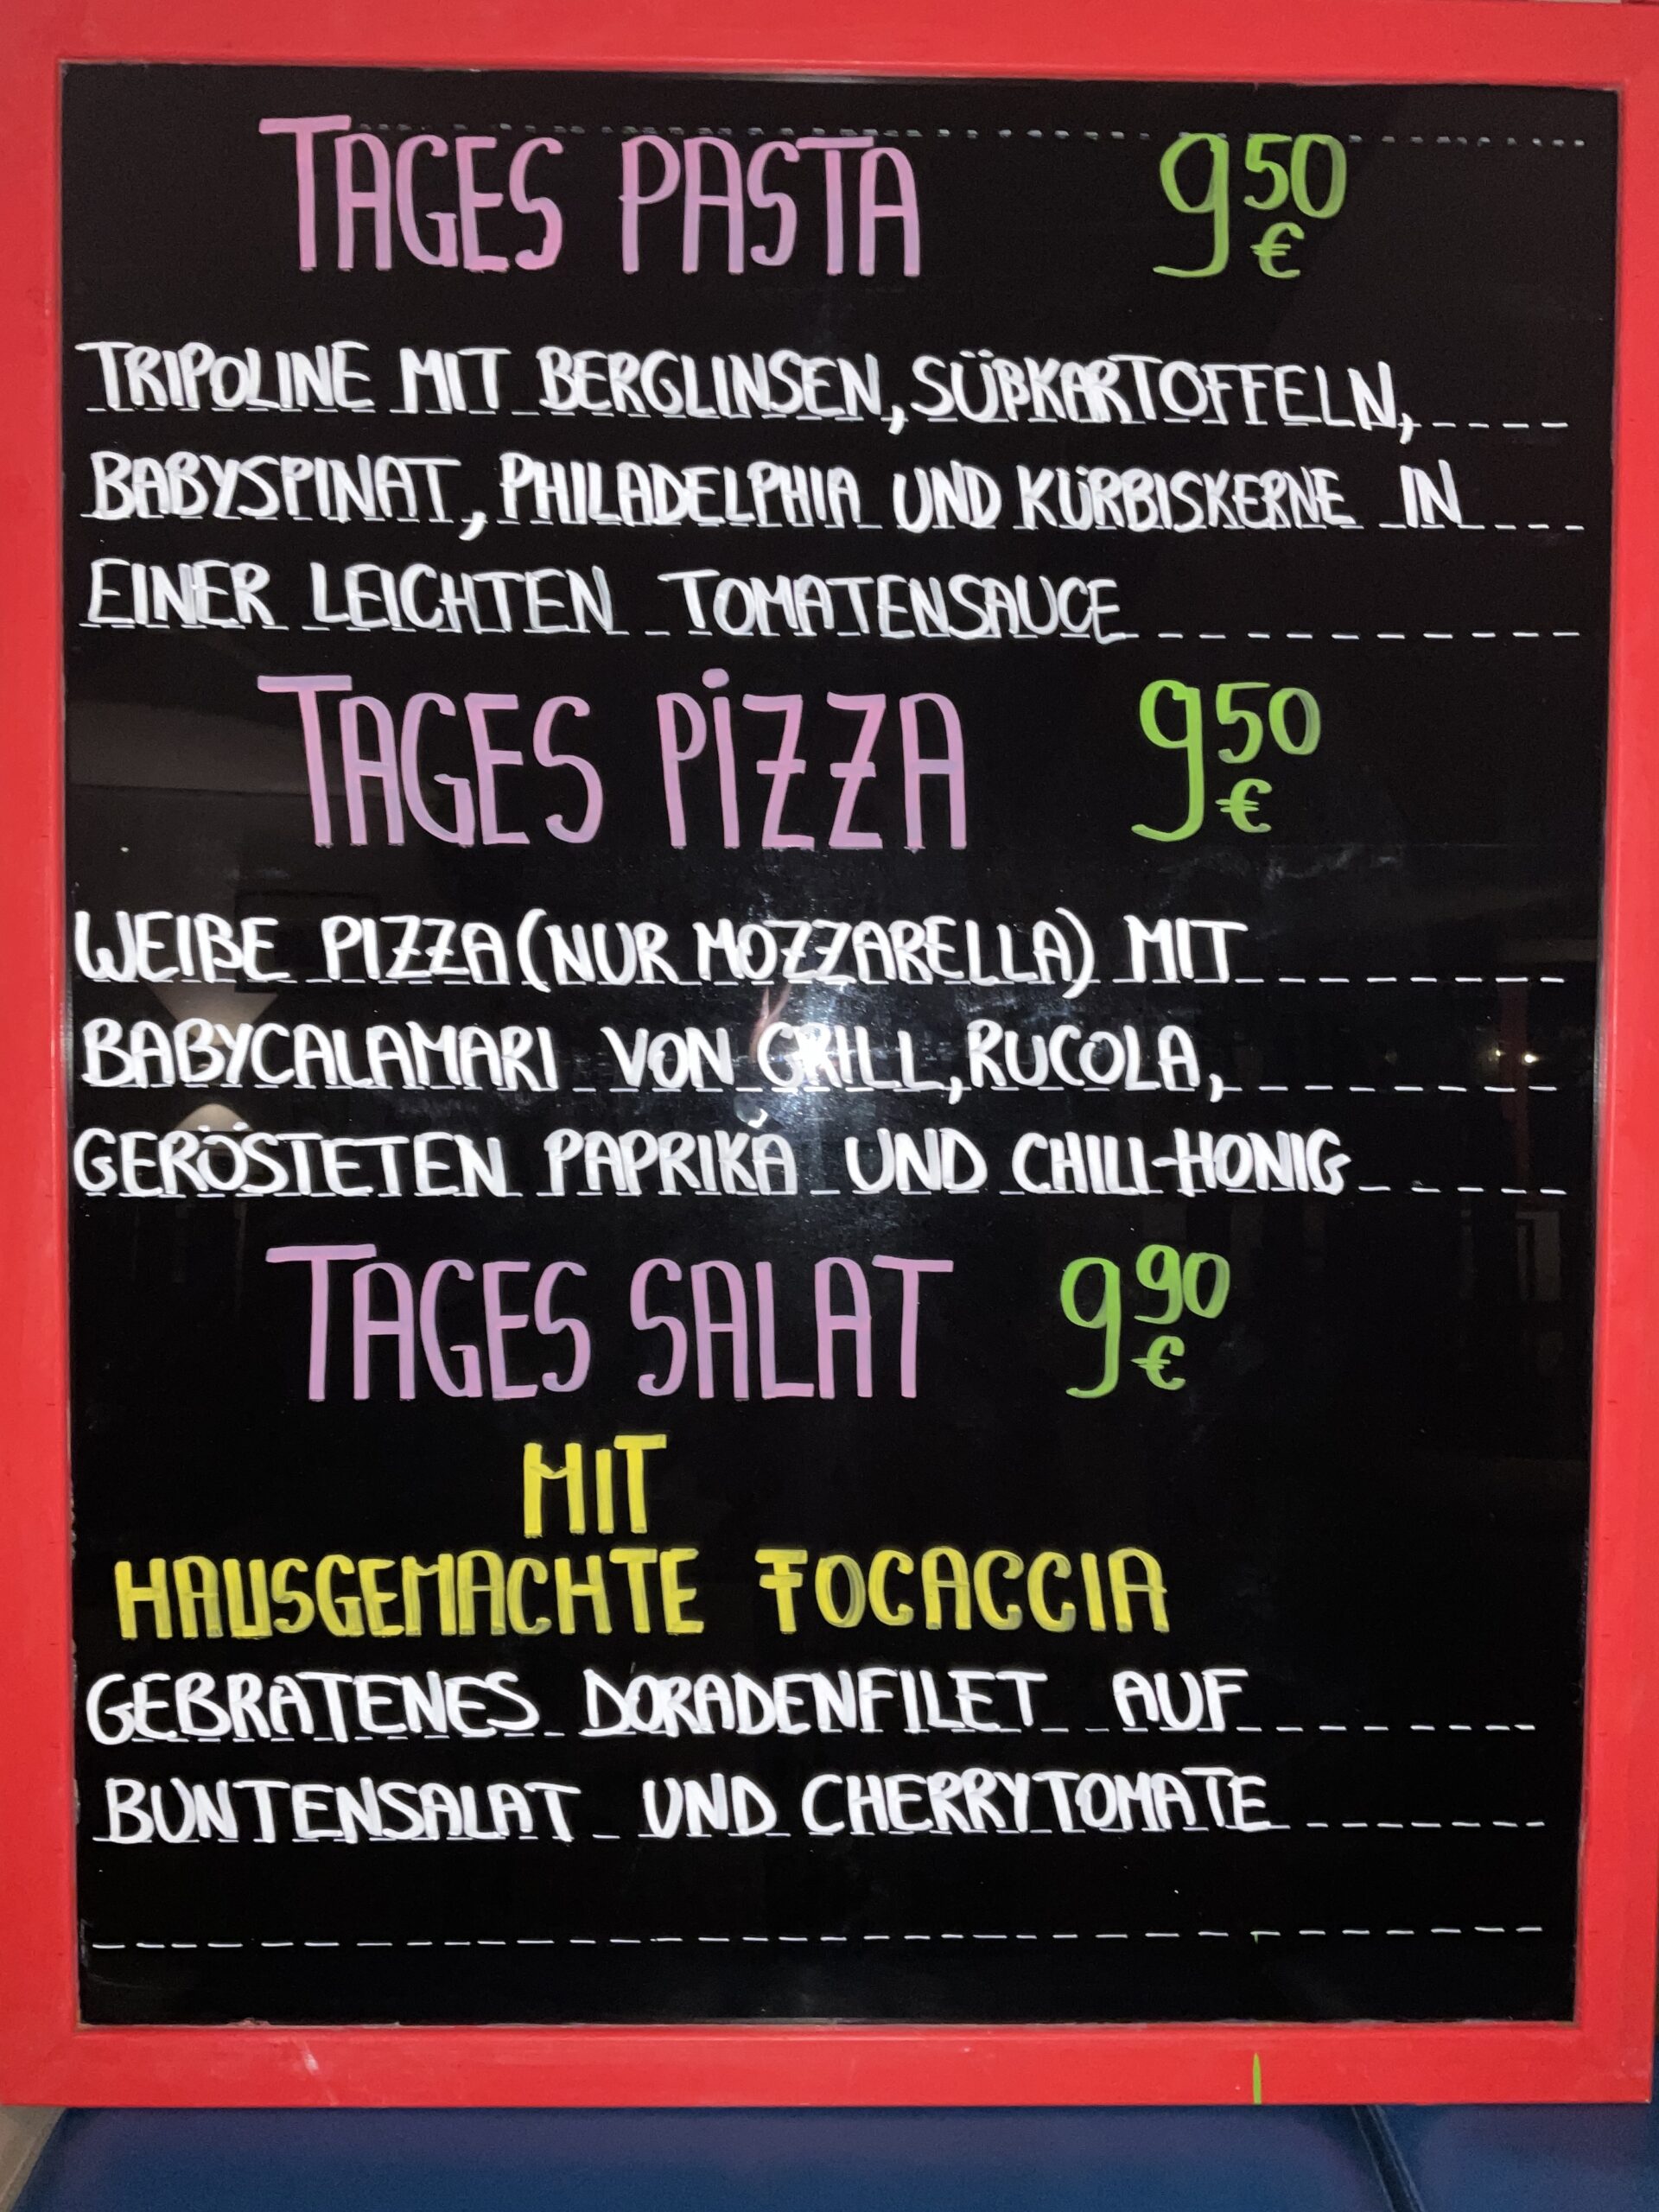 TAGES PASTA 9 50 €
TRIPOLINE MIT BERGLINSEN, SÜßKARTOFFELN,
BABYSPINAT, PHILADELPHIA UND KÜRBISKERNE IN
EINER LEICHTEN TOMATENSAUCE
TAGES PIZZA 9 50 €
WEIßE PIZZA (NUR MOZZARELLA) MIT
BABYCALAMARI VON GRILL, RUCOLA,
GERÖSTETEN PAPRIKA UND CHILI-HONIG
TAGES SALAT 9 90 €
MIT
HAUSGEMACHTE FOCACCIA
GEBRATENES DORADENFILET AUF
BUNTENSALAT UND CHERRYTOMATE